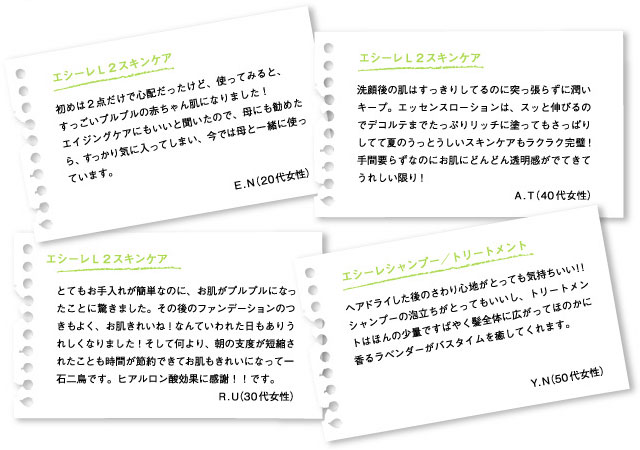 エシーレＬ２スキンケア
初めは２点だけで心配だったけど、使ってみると、
すっごいプルプルの赤ちゃん肌になりました！
エイジングケアにもいいと聞いたので、母にも勧めた
ら、すっかり気に入ってしまい、今では母と一緒に使っ
ています。
E.N(20代女性)
エシーレＬ２スキンケア
洗顔後の肌はすっきりしてるのに突っ張らずに潤い
キープ。エッセンスローションは、スッと伸びるの
でデコルテまでたっぷりリッチに塗ってもさっぱり
してて夏のうっとうしいスキンケアもラクラク完璧！
手間要らずなのにお肌にどんどん透明感がでてきて
うれしい限り！
A.T(40代女性)
エシーレＬ２スキンケア
とてもお手入れが簡単なのに、お肌がプルプルになっ
たことに驚きました。その後のファンデーションのつ
きもよく、お肌きれいね！なんていわれた日もありう
れしくなりました！そして何より、朝の支度が短縮さ
れたことも時間が節約できてお肌もきれいになって一
石二鳥です。ヒアルロン酸効果に感謝！！です。
R.U(30代女性)
エシーレシャンプー／トリートメント
ヘアドライした後のさわり心地がとっても気持ちいい!!
シャンプーの泡立ちがとってもいいし、トリートメン
トはほんの少量ですばやく髪全体に広がってほのかに
香るラベンダーがバスタイムを癒してくれます。
Y.N(50代女性)